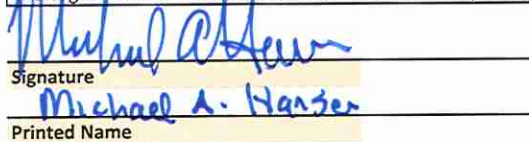 Michael A. Hansen
Signature
Michael A. Hansen
Printed Name